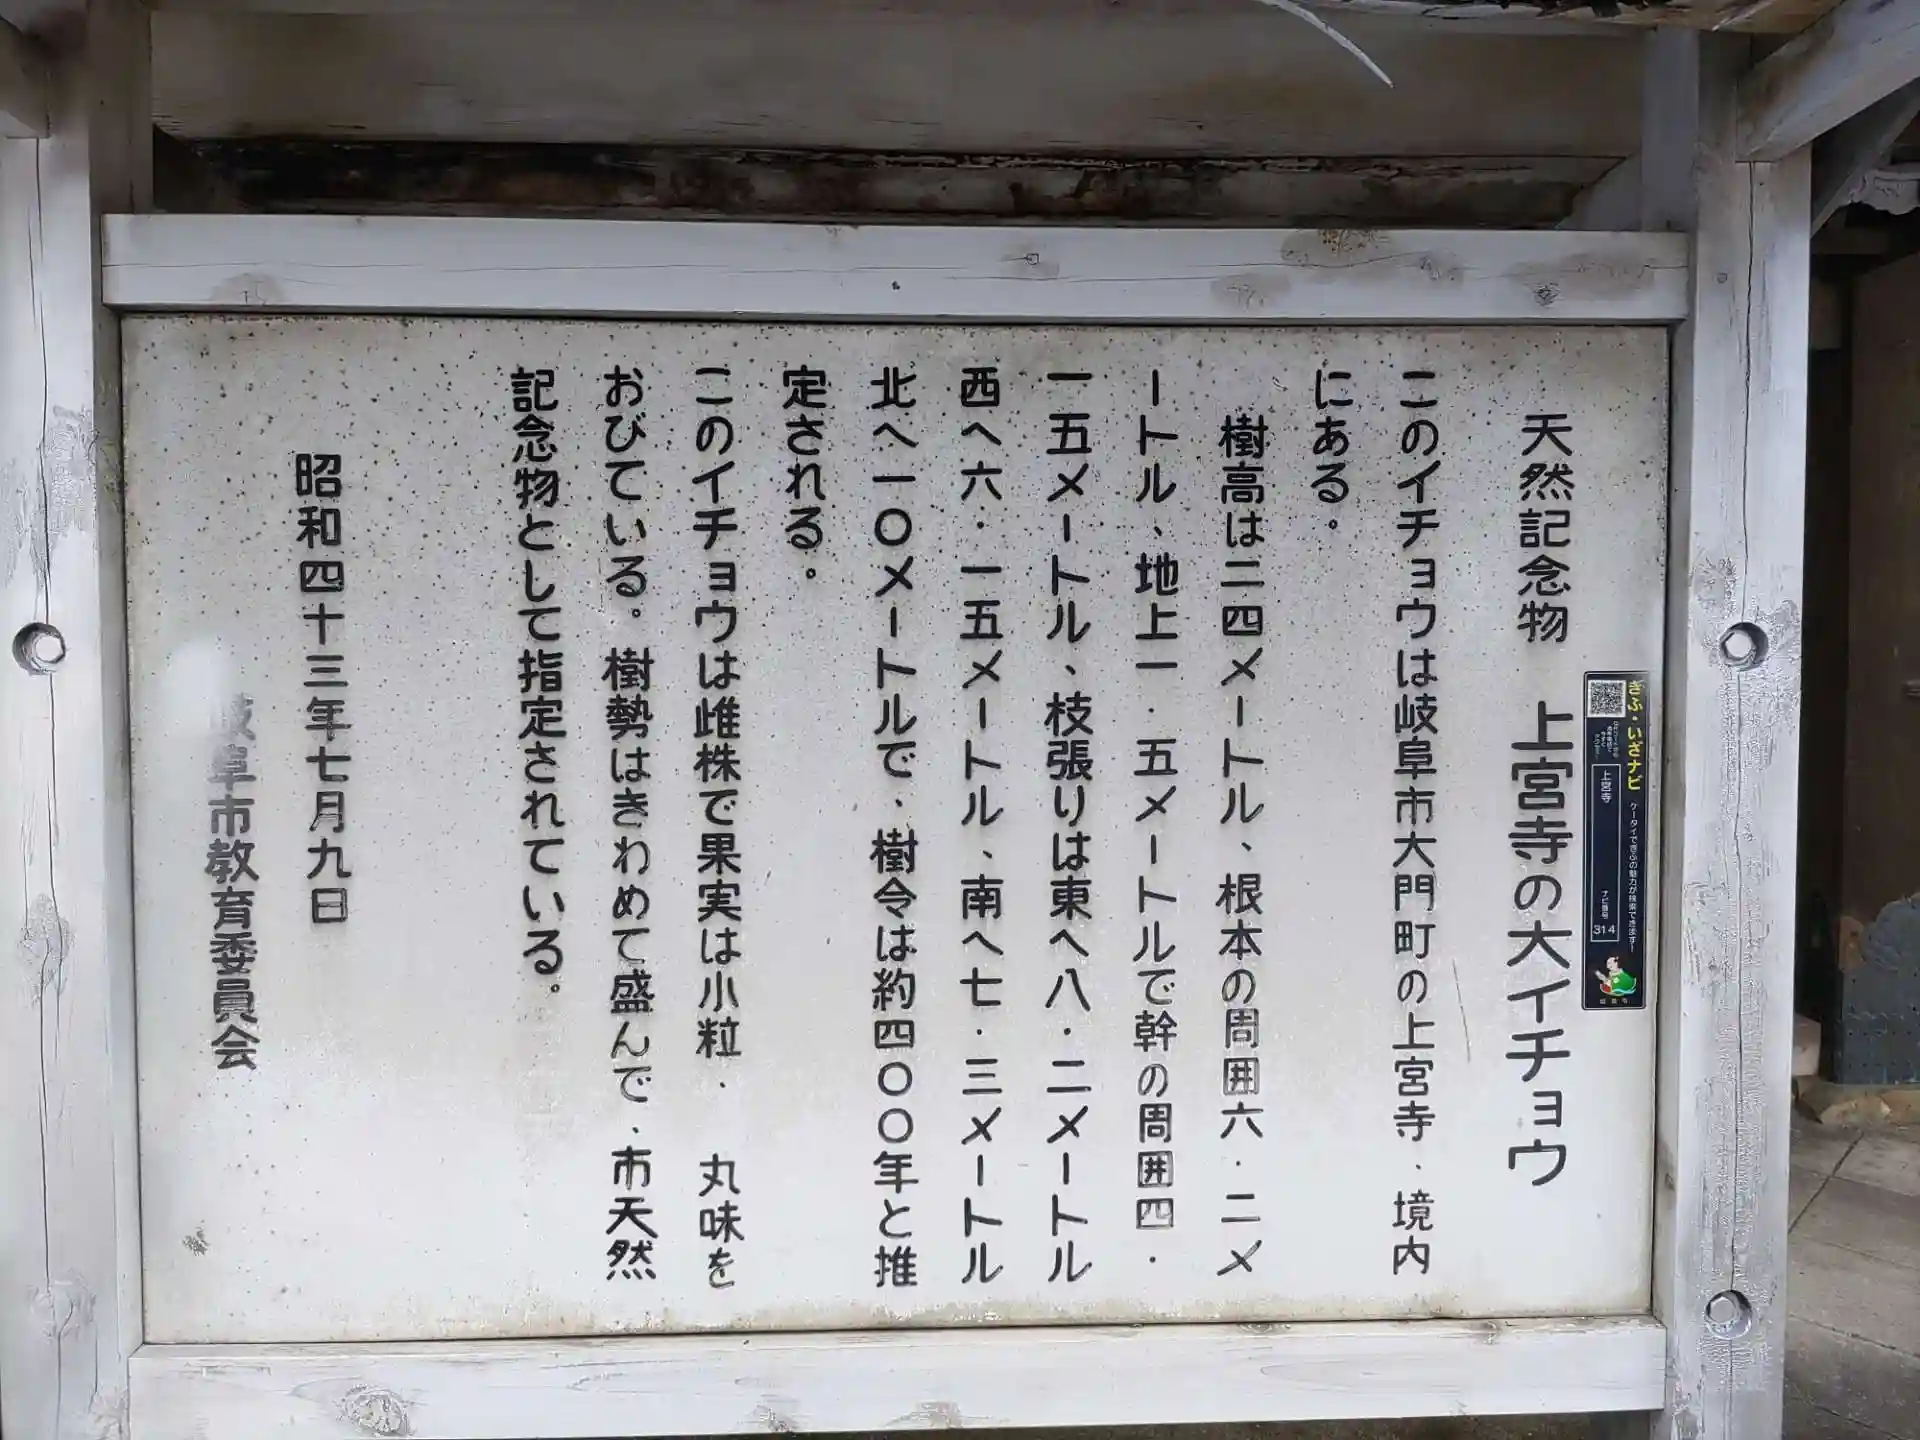 天然記念物　上宮寺の大イチョウ
このイチョウは岐阜市大門町の上宮寺．境内
にある．
樹高は二四メートル、根本の周囲六・二メ
ートル、地上一・五メートルで幹の周囲四・
一五メートル、枝張りは東へ八・二メートル
西へ六・一五メートル、南へ七・三メートル
北へ一〇メートルで．樹令は約四〇〇年と推
定される．
このイチョウは雌株で果実は小粒．丸味を
おびている。樹勢はきわめて盛んで．市天然
記念物として指定されている。
昭和四十三年七月九日
岐阜市教育委員会
ぎふ・いざナビ
ケータイでぎふの魅力が検索できます！
上宮寺
ナビ番号
314